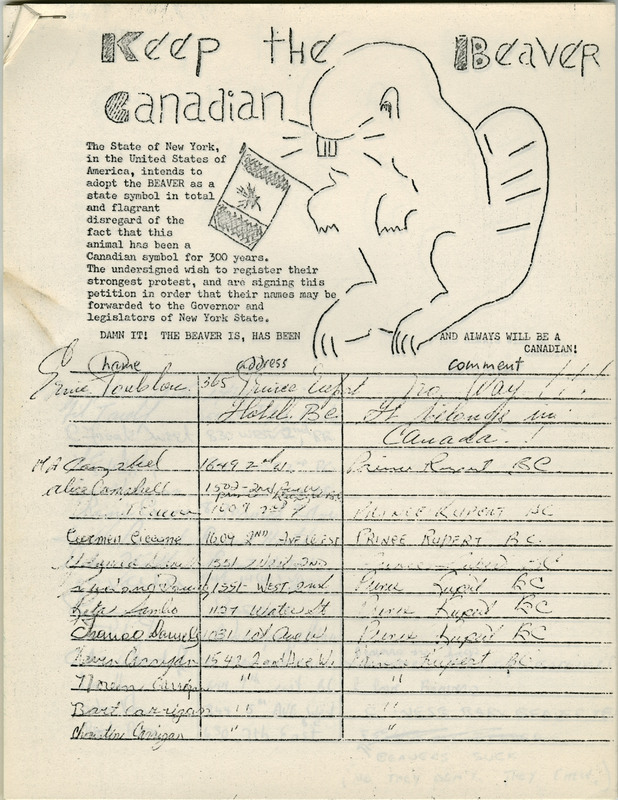 Keep the Beaver
Canadian
The State of New York,
in the United States of
America, intends to
adopt the BEAVER as a
state symbol in total
and flagrant
disregard of the
fact that this
animal has been a
Canadian symbol for 300 years.
The undersigned wish to register their
strongest protest, and are signing this
petition in order that their names may be
forwarded to the Governor and
legislators of New York State.
DAMN IT! THE BEAVER IS, HAS BEEN AND ALWAYS WILL BE A
CANADIAN!
name address comment
365 Prince Rupert No Way !!!
Hotel BC It belongs in
Canada.!
Campbell 1649 2nd W. Prince Rupert BC
Alice Campbell 1502-2nd Ave W
PRINCE RUPERT BC
Carmen 1604 2ND AVE WEST PRINCE RUPERT BC.
1351 2ND
1351 WEST 2nd Prince Rupert BC
Sambo 1137 Water St Prince Rupert BC
1st Ave W Prince Rupert BC
Kevin Carrigan 1542 2nd Ave W. Prince Rupert BC
Noreen Carrigan " "
Bart Carrigan " "
Christine Carrigan " "